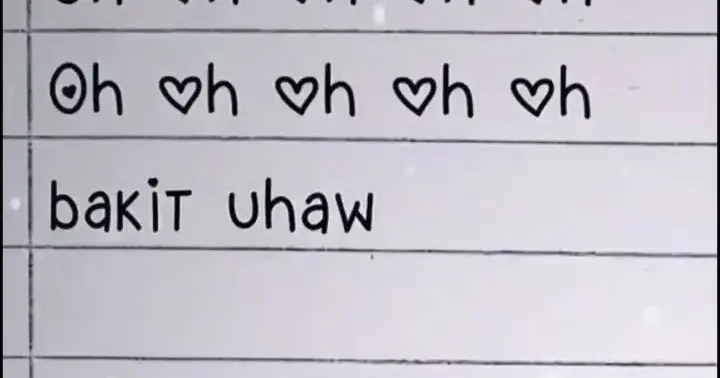 Oh ♡h ♡h ♡h ♡h
bakit uhaw